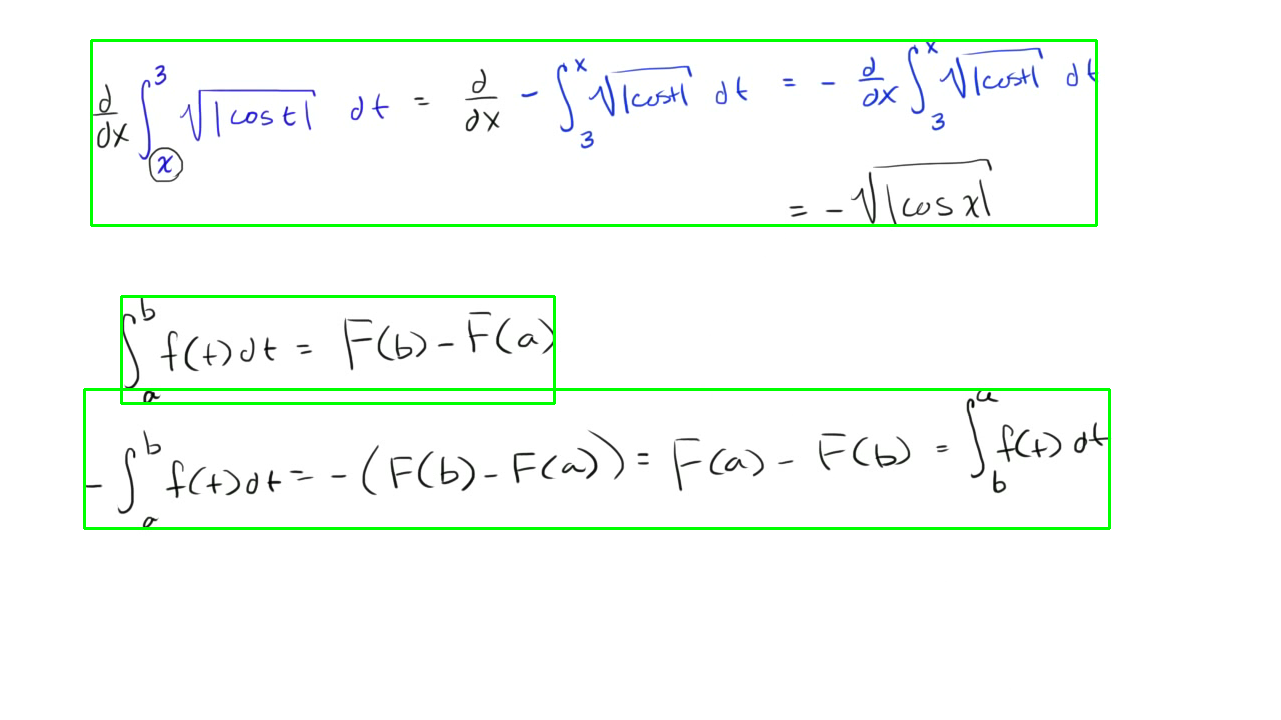 $\frac{d}{dx} \int_{x}^{3} \sqrt{|\cos t|} \, dt = \frac{d}{dx} - \int_{3}^{x} \sqrt{|\cos t|} \, dt = - \frac{d}{dx} \int_{3}^{x} \sqrt{|\cos t|} \, dt$
$= - \sqrt{|\cos x|}$
$\int_{a}^{b} f(t) dt = F(b) - F(a)$
$- \int_{a}^{b} f(t) dt = - (F(b) - F(a)) = F(a) - F(b) = \int_{b}^{a} f(t) \, dt$